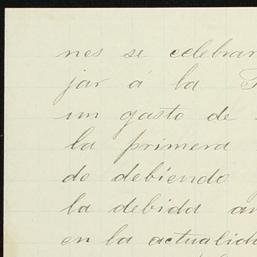 nes se celebrar
jar á la
un gasto de
la primera
do debiendo
la debida an
en la actualid